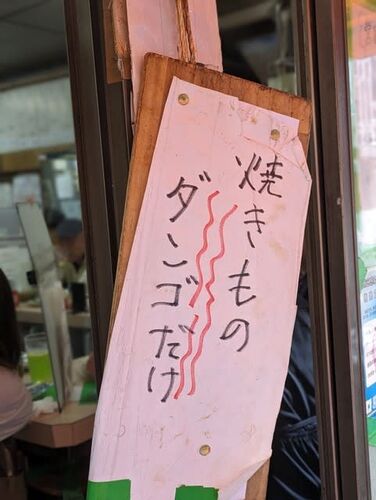 焼きもの
ダンゴだけ